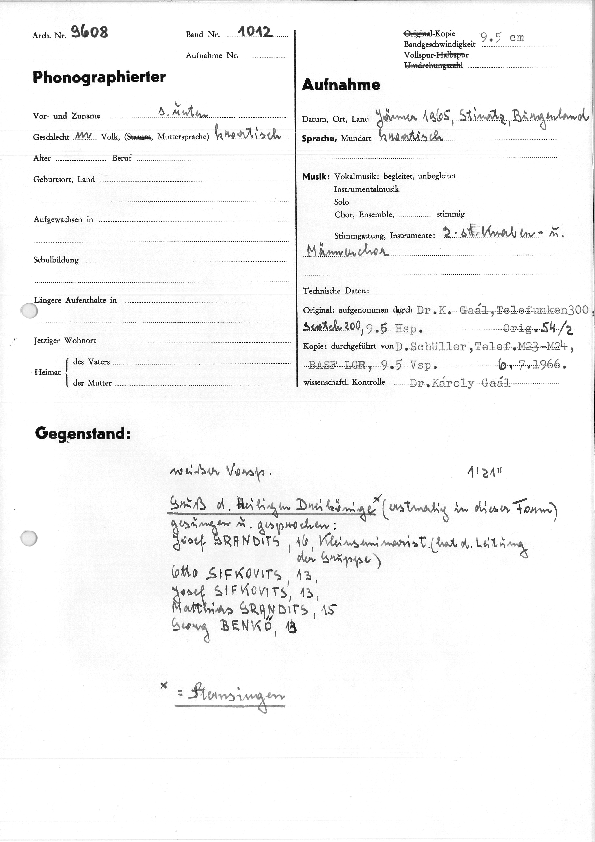 Arch. Nr. 9608 Band Nr. 1012
Aufnahme Nr.
Original-Kopie 9.5 cm
Bandgeschwindigkeit
Vollspur-Halbspur
Umdrehungszahl
Phonographierter
Vor- und Zuname s. unten
Geschlecht m Volk, (Stamm, Muttersprache) kroatisch
Alter Beruf
Geburtsort, Land
Aufgewachsen in
Schulbildung
Längere Aufenthalte in
Jetziger Wohnort
Heimat { des Vaters
der Mutter
Aufnahme
Datum, Ort, Land Jänner 1965, Stinatz, Burgenland
Sprache, Mundart kroatisch
Musik: Vokalmusik: begleitet, unbegleitet
Instrumentalmusik
Solo
Chor, Ensemble, stimmig
Stimmgattung, Instrumente: 2-st. Knaben- u.
Männerchor
Technische Daten:
Original: aufgenommen durch Dr.K. Gaál, Telefunken300,
Scotch 200, 9.5 Hsp. Orig. 54/2
Kopie: durchgeführt von D.Schüller, Telef.M23-M24,
BASF LGR, 9.5 Vsp. 6.7.1966.
wissenschaftl. Kontrolle Dr.Károly Gaál
Gegenstand:
weißer Vorsp. 1'21"
Gruß d. Heiligen Dreikönige* (erstmalig in dieser Form)
gesungen u. gesprochen:
Josef GRANDITS, 16, Kleinseminarist (hat d. Leitung
der Gruppe)
Otto SIFKOVITS, 13,
Josef SIFKOVITS, 13,
Matthias GRANDITS, 15
Georg BENKÖ, 13
* = Sternsingen